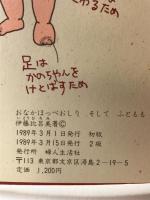 わるため
足は
かのちゃんを
けとばすため
おなかほっぺおしり そして ふともも
伊藤比呂美著©
1989年3月1日発行 初版
1989年3月15日発行 2版
発行所 婦人生活社
〒113 東京都文京区湯島2-19-5
定価 1,200円